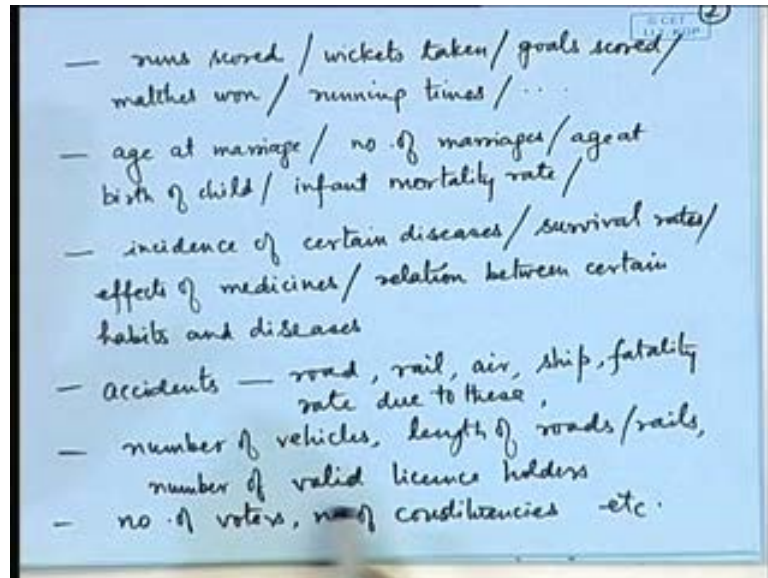 2
© CET
I.I.T. KGP
— runs scored / wickets taken / goals scored /
matches won / running times / ....
— age at marriage / no. of marriages / age at
birth of child / infant mortality rate /
— incidence of certain diseases / survival rates /
effects of medicines / relation between certain
habits and diseases
— accidents — road, rail, air, ship, fatality
rate due to these,
— number of vehicles, length of roads / rails,
number of valid licence holders
— no. of voters, no. of constituencies etc.